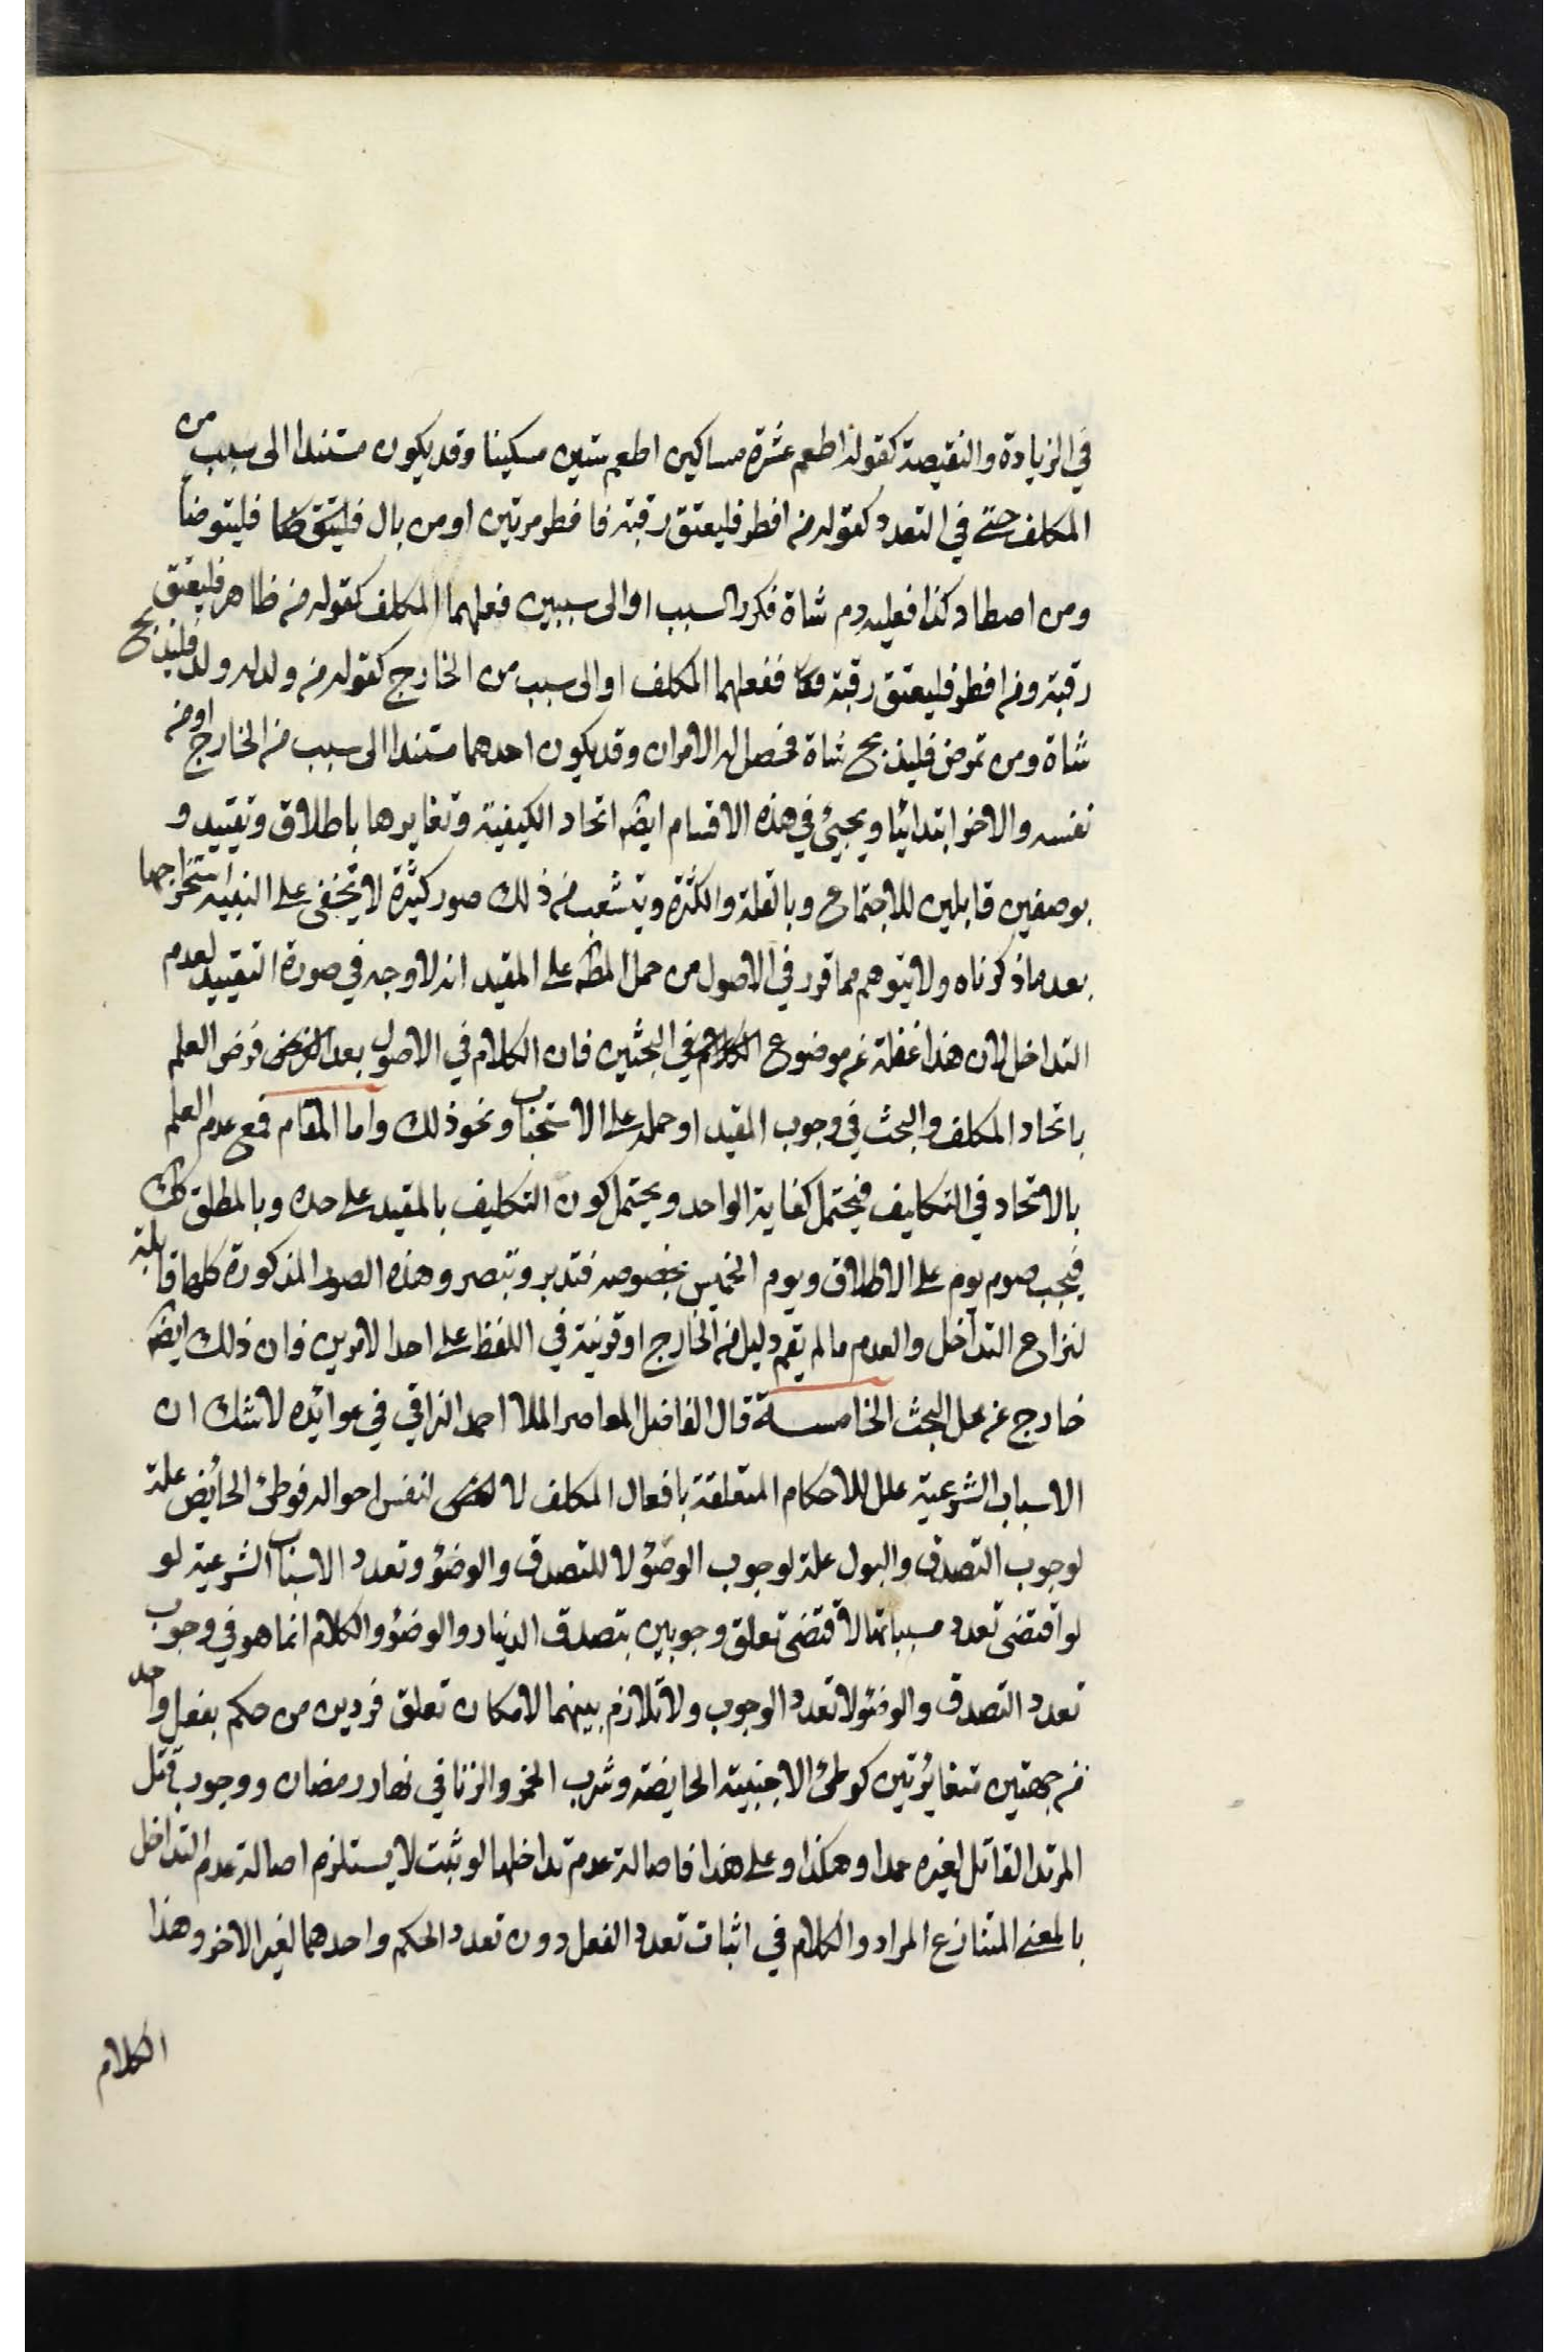 في الزيادة والنقيصة كقوله اطعم عشرة مساكين اطعم ستين مسكينا وقد يكون مستندا الى سبب من
المكلف حتى في التعدد كقوله من افطر فليعتق رقبة فافطر مرتين او من بال فليتوضا
ومن اصطاد كذا فعليه دم شاة فكرر السبب او الى سببين فعلهما المكلف كقوله من ظاهر فليعتق
رقبة ومن افطر فليعتق رقبة ففعلهما المكلف او الى سبب من الخارج كقوله من ولد له ولد فليذبح
شاة ومن تمرض فليذبح شاة فحصل له الامران وقد يكون احدهما مستندا الى سبب من الخارج او من
نفسه والاخر ابتدائيا ويجيئ في هذه الاقسام ايضا اتحاد الكيفية وتغايرها باطلاق وتقييد و
بوصفين قابلين للاجتماع وبالقلة والكثرة ويتشعب من ذلك صور كثيرة لا تخفى على النبيه استخراجها
بعد ما ذكرناه ولا يتوهم مما قرر في الاصول من حمل المط على المقيد انه لا وجه في صورة التقييد لعدم
التداخل لان هذا غفلة عن موضوع الكلام في البحثين فان الكلام في الاصول بعد فرض العلم
باتحاد المكلف والبحث في وجوب المقيد او حمله على الاستحباب ونحو ذلك واما المقام فمع عدم العلم
بالاتحاد في التكاليف فيحتمل كفاية الواحد ويحتمل كون التكليف بالمقيد على حده وبالمطلق كك
فيجب صوم يوم على الاطلاق ويوم الخميس بخصوصه فتدبر وتبصر وهذه الصور المذكورة كلها قابلة
لنزاع التداخل والعدم ما لم يقم دليل من الخارج او قرينة في اللفظ على احد الامرين فان ذلك ايضا
خارج عن محل البحث الخامسة قال الفاضل المعاصر الملا احمد النراقي في عوائده لا شك ان
الاسباب الشرعية علل للاحكام المتعلقة بافعال المكلف لا لنفس احواله فوطئ الحائض علة
لوجوب التصدق والبول علة لوجوب الوضوء لا للتصدق والوضوء وتعدد الاسباب الشرعية لو
لو اقتضى تعدد مسبباتها لاقتضى تعلق وجوبين بتصدق الدينار والوضوء والكلام انما هو في وجوب
تعدد التصدق والوضوء لا تعدد الوجوب ولا تلازم بينهما لامكان تعلق فردين من حكم بفعل واحد
من جهتين متغايرتين كوطئ الاجنبية الحايضة وشرب الخمر والزنا في نهار رمضان ووجوب قتل
المرتد القاتل لغيره عمدا وهكذا وعلى هذا فاصالة عدم تداخلها لو ثبت لا يستلزم اصالة عدم التداخل
بالمعنى المتنازع المراد والكلام في اثبات تعدد الفعل دون تعدد الحكم واحدهما لغير الاخر وهذا
الكلام